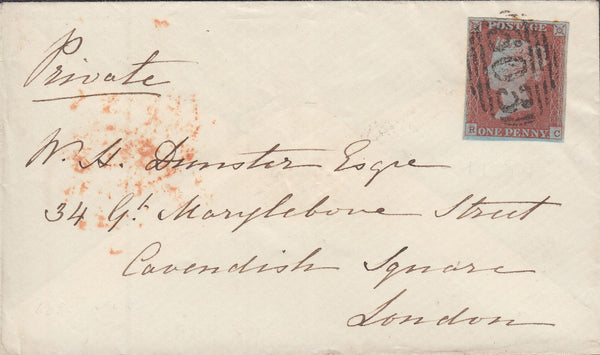 Private
POSTAGE
R ONE PENNY. C
W. H. Dunster Esqre
34 Gt. Marylebone Street
Cavendish Square
London